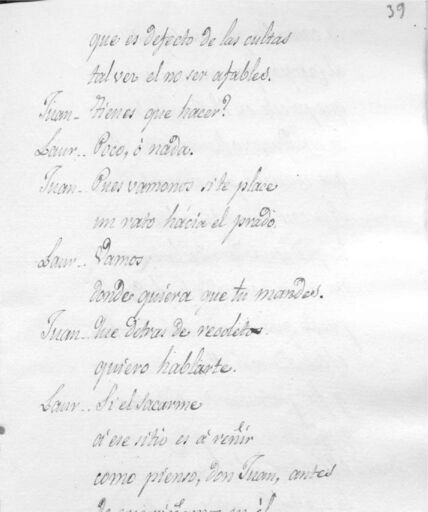 39
que es defecto de las cultas
tal vez el no ser afables.
Juan- tienes que hacer?
Laur.. Poco, ó nada.
Juan- Pues vamonos si te place
un rato hácia el prado
Laur.. Vamos
donde quiera que tu mandes.
Juan- Que detras de recoletos
quiero hablarte.
Laur.. Si el sacarme
á ese sitio es á reñir
como pienso, don Juan, antes
de que riñamos en él